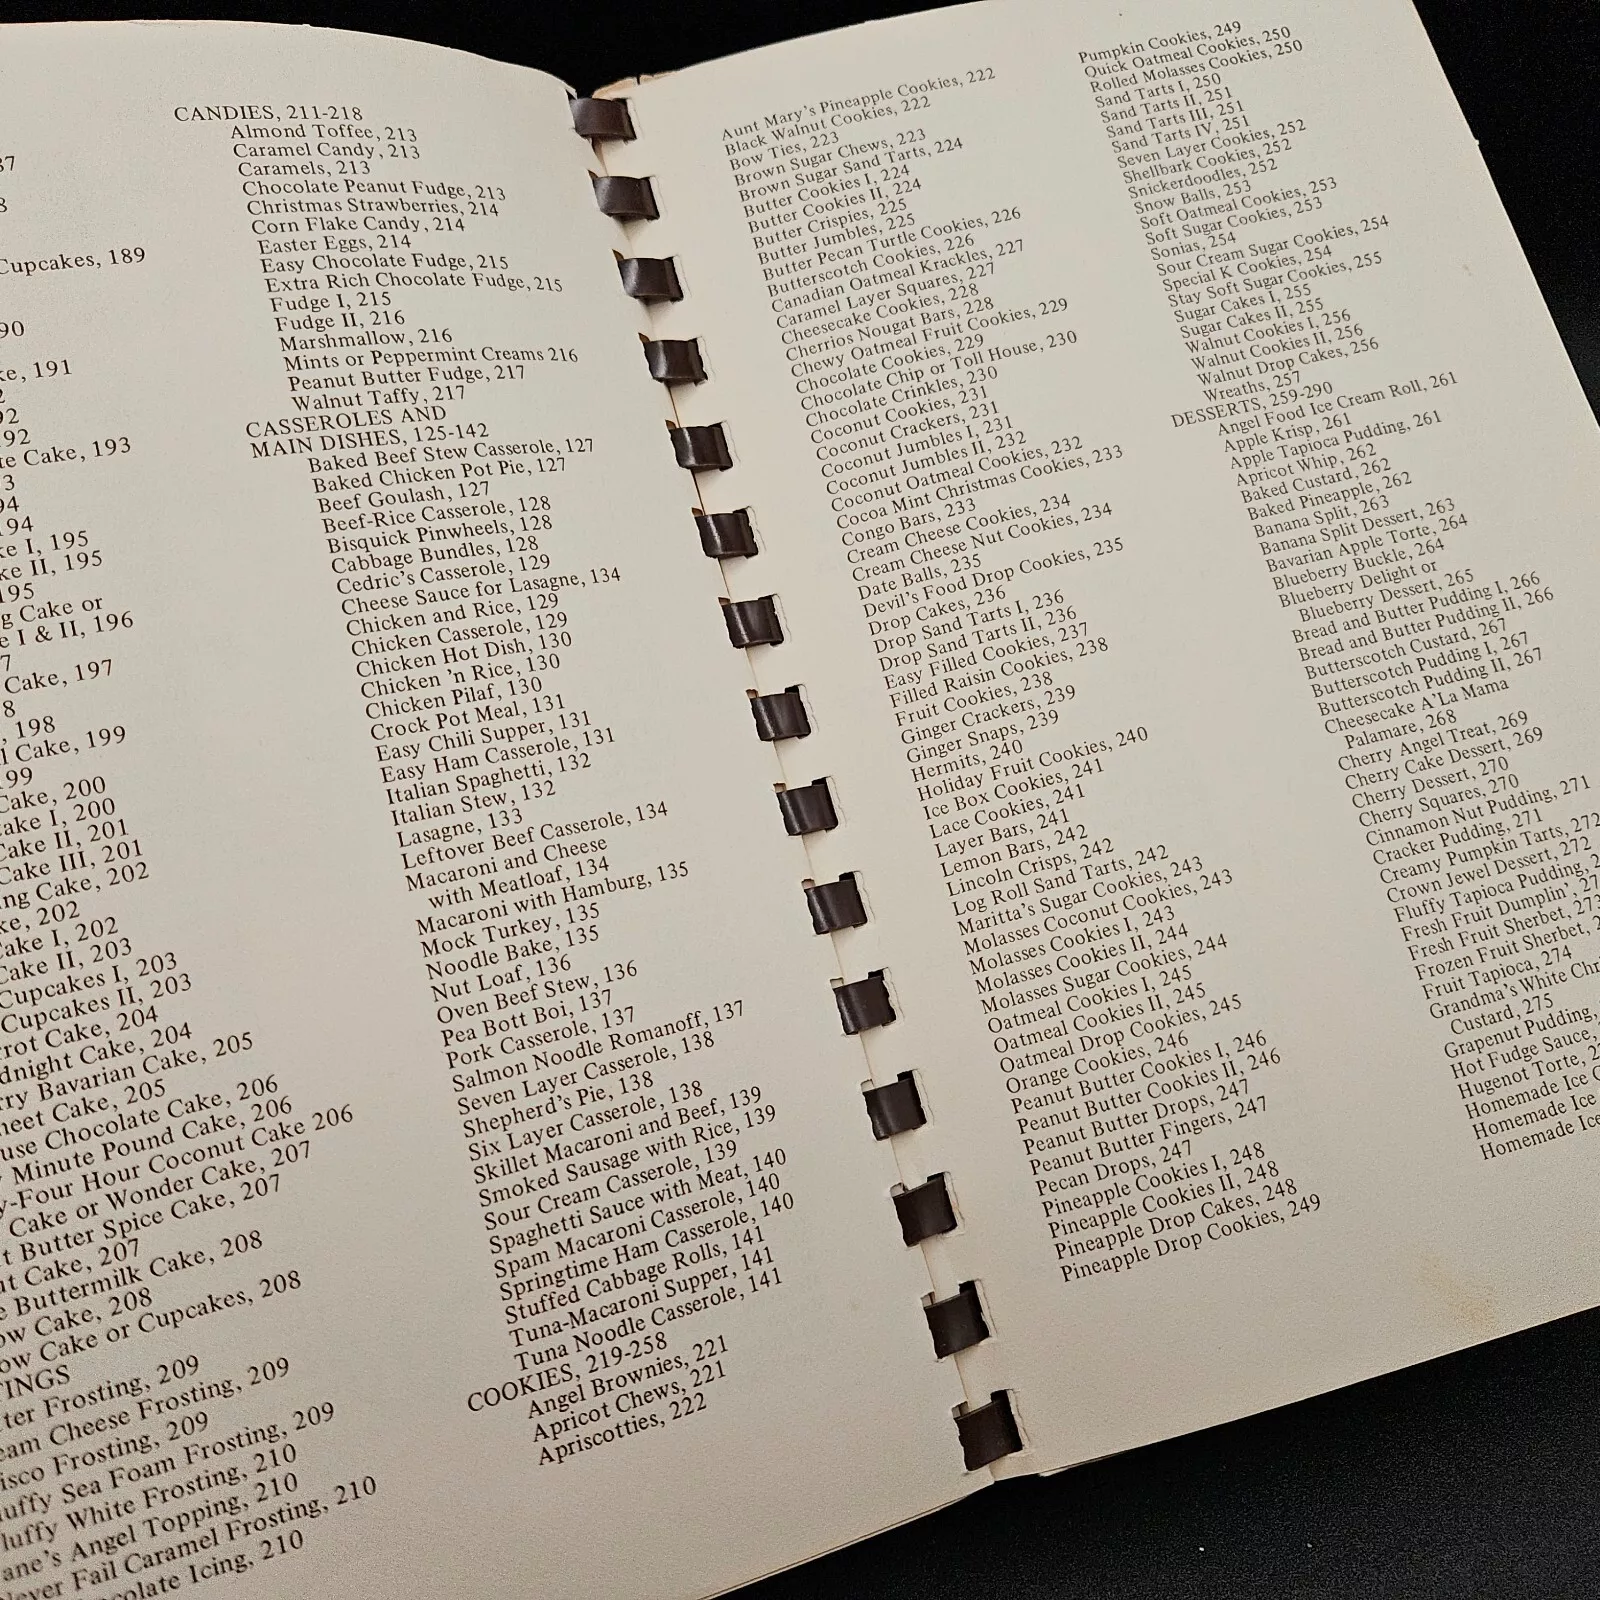 37
8
Cupcakes, 189
90
ke, 191
2
92
92
te Cake, 193
3
94
194
ke I, 195
ke II, 195
195
g Cake or
e I & II, 196
7
Cake, 197
8
, 198
i Cake, 199
199
Cake, 200
ake I, 200
Cake II, 201
Cake III, 201
ng Cake, 202
ke, 202
ake I, 202
Cake II, 203
Cupcakes I, 203
Cupcakes II, 203
rot Cake, 204
dnight Cake, 204
rry Bavarian Cake, 205
heet Cake, 205
use Chocolate Cake, 206
Minute Pound Cake, 206
y-Four Hour Coconut Cake 206
Cake or Wonder Cake, 207
t Butter Spice Cake, 207
ut Cake, 207
e Buttermilk Cake, 208
ow Cake, 208
ow Cake or Cupcakes, 208
TINGS
ter Frosting, 209
eam Cheese Frosting, 209
isco Frosting, 209
luffy Sea Foam Frosting, 209
luffy White Frosting, 210
ane's Angel Topping, 210
Never Fail Caramel Frosting, 210
ocolate Icing, 210
CANDIES, 211-218
Almond Toffee, 213
Caramel Candy, 213
Caramels, 213
Chocolate Peanut Fudge, 213
Christmas Strawberries, 214
Corn Flake Candy, 214
Easter Eggs, 214
Easy Chocolate Fudge, 215
Extra Rich Chocolate Fudge, 215
Fudge I, 215
Fudge II, 216
Marshmallow, 216
Mints or Peppermint Creams 216
Peanut Butter Fudge, 217
Walnut Taffy, 217
CASSEROLES AND
MAIN DISHES, 125-142
Baked Beef Stew Casserole, 127
Baked Chicken Pot Pie, 127
Beef Goulash, 127
Beef-Rice Casserole, 128
Bisquick Pinwheels, 128
Cabbage Bundles, 128
Cedric's Casserole, 129
Cheese Sauce for Lasagne, 134
Chicken and Rice, 129
Chicken Casserole, 129
Chicken Hot Dish, 130
Chicken 'n Rice, 130
Chicken Pilaf, 130
Crock Pot Meal, 131
Easy Chili Supper, 131
Easy Ham Casserole, 131
Italian Spaghetti, 132
Italian Stew, 132
Lasagne, 133
Leftover Beef Casserole, 134
Macaroni and Cheese
with Meatloaf, 134
Macaroni with Hamburg, 135
Mock Turkey, 135
Noodle Bake, 135
Nut Loaf, 136
Oven Beef Stew, 136
Pea Bott Boi, 137
Pork Casserole, 137
Salmon Noodle Romanoff, 137
Seven Layer Casserole, 138
Shepherd's Pie, 138
Six Layer Casserole, 138
Skillet Macaroni and Beef, 139
Smoked Sausage with Rice, 139
Sour Cream Casserole, 139
Spaghetti Sauce with Meat, 140
Spam Macaroni Casserole, 140
Springtime Ham Casserole, 140
Stuffed Cabbage Rolls, 141
Tuna-Macaroni Supper, 141
Tuna Noodle Casserole, 141
COOKIES, 219-258
Angel Brownies, 221
Apricot Chews, 221
Apriscotties, 222
Aunt Mary's Pineapple Cookies, 222
Black Walnut Cookies, 222
Bow Ties, 223
Brown Sugar Chews, 223
Brown Sugar Sand Tarts, 224
Butter Cookies I, 224
Butter Cookies II, 224
Butter Crispies, 225
Butter Jumbles, 225
Butter Pecan Turtle Cookies, 226
Butterscotch Cookies, 226
Canadian Oatmeal Krackles, 227
Caramel Layer Squares, 227
Cheesecake Cookies, 228
Cherrios Nougat Bars, 228
Chewy Oatmeal Fruit Cookies, 229
Chocolate Cookies, 229
Chocolate Chip or Toll House, 230
Chocolate Crinkles, 230
Coconut Cookies, 231
Coconut Crackers, 231
Coconut Jumbles I, 231
Coconut Jumbles II, 232
Coconut Oatmeal Cookies, 232
Cocoa Mint Christmas Cookies, 233
Congo Bars, 233
Cream Cheese Cookies, 234
Cream Cheese Nut Cookies, 234
Date Balls, 235
Devil's Food Drop Cookies, 235
Drop Cakes, 236
Drop Sand Tarts I, 236
Drop Sand Tarts II, 236
Easy Filled Cookies, 237
Filled Raisin Cookies, 238
Fruit Cookies, 238
Ginger Crackers, 239
Ginger Snaps, 239
Hermits, 240
Holiday Fruit Cookies, 240
Ice Box Cookies, 241
Lace Cookies, 241
Layer Bars, 241
Lemon Bars, 242
Lincoln Crisps, 242
Log Roll Sand Tarts, 242
Maritta's Sugar Cookies, 243
Molasses Coconut Cookies, 243
Molasses Cookies I, 243
Molasses Cookies II, 244
Molasses Sugar Cookies, 244
Oatmeal Cookies I, 245
Oatmeal Cookies II, 245
Oatmeal Drop Cookies, 245
Orange Cookies, 246
Peanut Butter Cookies I, 246
Peanut Butter Cookies II, 246
Peanut Butter Drops, 247
Peanut Butter Fingers, 247
Pecan Drops, 247
Pineapple Cookies I, 248
Pineapple Cookies II, 248
Pineapple Drop Cakes, 248
Pineapple Drop Cookies, 249
Pumpkin Cookies, 249
Quick Oatmeal Cookies, 250
Rolled Molasses Cookies, 250
Sand Tarts I, 250
Sand Tarts II, 251
Sand Tarts III, 251
Sand Tarts IV, 251
Seven Layer Cookies, 252
Shellbark Cookies, 252
Snickerdoodles, 252
Snow Balls, 253
Soft Oatmeal Cookies, 253
Soft Sugar Cookies, 253
Sonias, 254
Sour Cream Sugar Cookies, 254
Special K Cookies, 254
Stay Soft Sugar Cookies, 255
Sugar Cakes I, 255
Sugar Cakes II, 255
Walnut Cookies I, 256
Walnut Cookies II, 256
Walnut Drop Cakes, 256
Wreaths, 257
DESSERTS, 259-290
Angel Food Ice Cream Roll, 261
Apple Krisp, 261
Apple Tapioca Pudding, 261
Apricot Whip, 262
Baked Custard, 262
Baked Pineapple, 262
Banana Split, 263
Banana Split Dessert, 263
Bavarian Apple Torte, 264
Blueberry Buckle, 264
Blueberry Delight or
Blueberry Dessert, 265
Bread and Butter Pudding I, 266
Bread and Butter Pudding II, 266
Butterscotch Custard, 267
Butterscotch Pudding I, 267
Butterscotch Pudding II, 267
Cheesecake A'La Mama
Palamare, 268
Cherry Angel Treat, 269
Cherry Cake Dessert, 269
Cherry Dessert, 270
Cherry Squares, 270
Cinnamon Nut Pudding, 271
Cracker Pudding, 271
Creamy Pumpkin Tarts, 272
Crown Jewel Dessert, 272
Fluffy Tapioca Pudding, 2
Fresh Fruit Dumplin', 27
Fresh Fruit Sherbet, 273
Frozen Fruit Sherbet, 2
Fruit Tapioca, 274
Grandma's White Chri
Custard, 275
Grapenut Pudding,
Hot Fudge Sauce, 2
Hugenot Torte, 2
Homemade Ice C
Homemade Ice
Homemade Ice